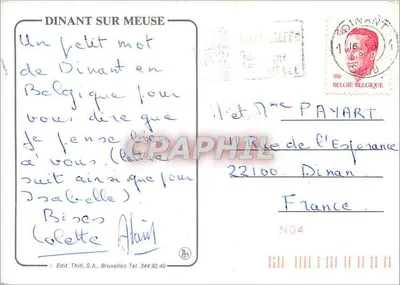 DINANT SUR MEUSE
Un petit mot
de Dinant en
Belgique pour
vous dire que
je pense
à vous (lettre
suit ainsi que pour
Isabelle)
Bises
Colette Alain
Edit. Thill, S.A., Bruxelles Tél. 344.92.40
DINANT
16
BELGIË-BELGIQUE
CPAPHIL
et Mme PAYART
Rue de l'Esperance
22100 Dinan
France
N04